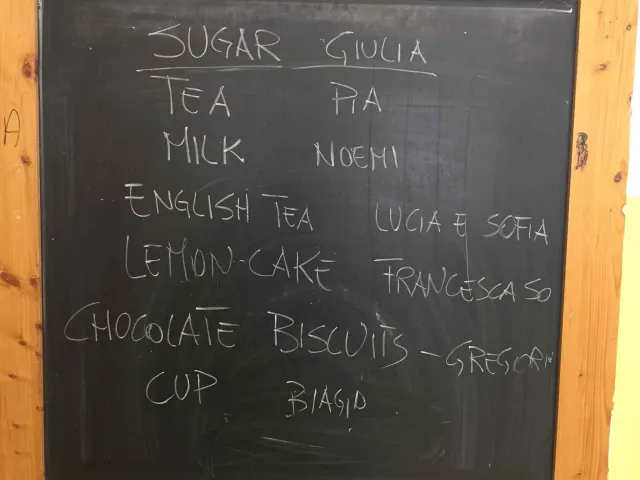 SUGAR GIULIA
TEA PIA
MILK NOEMI
ENGLISH TEA LUCIA E SOFIA
LEMON-CAKE FRANCESCA SO
CHOCOLATE BISCUITS - GREGORI
CUP BIAGIO
A